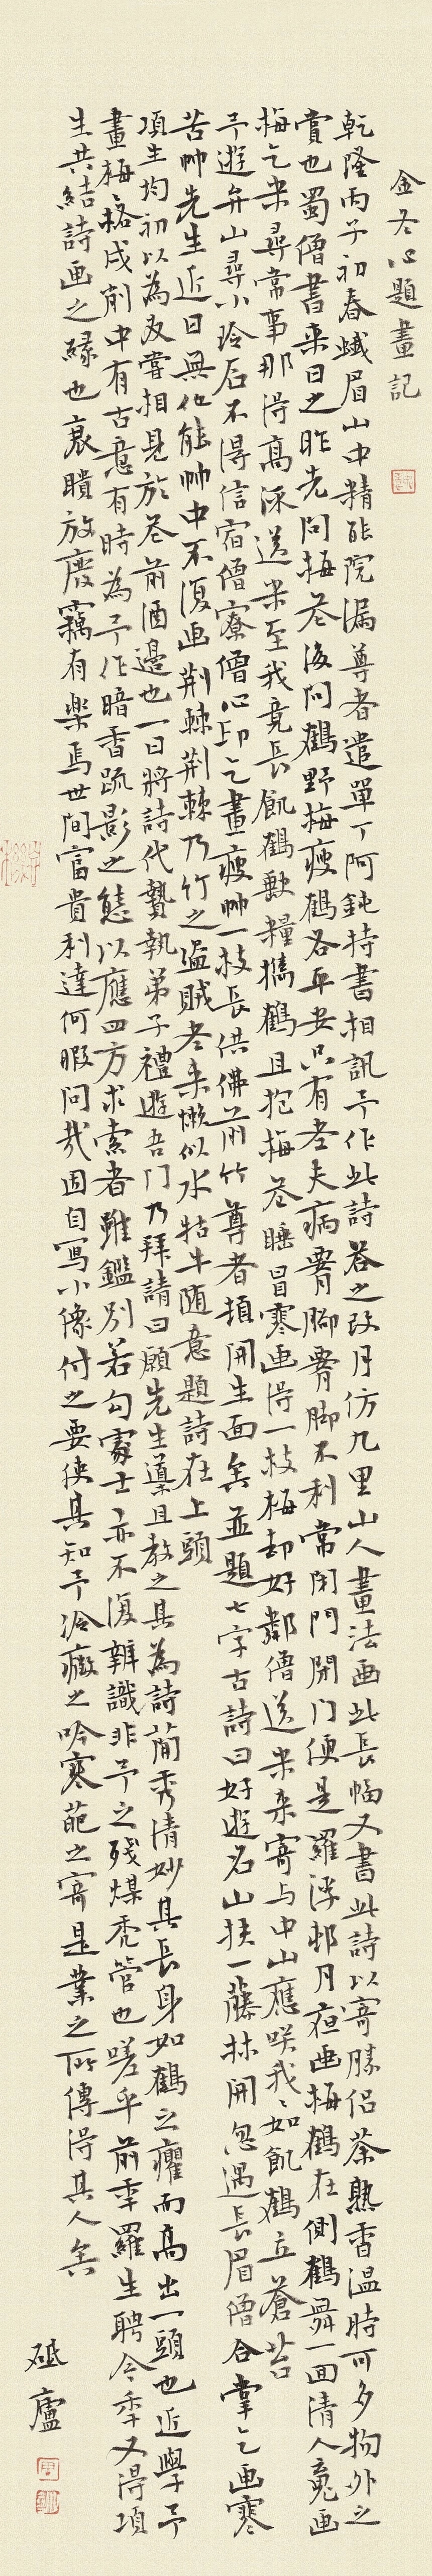 金冬心題畫記
乾隆丙子初春峨眉山中精能院漏尊者遣單丁阿鈍持書相訊予作此詩答之改月仿九里山人畫法画此長幅又書此詩以寄勝侣茶熟香温時可多物外之
賞也蜀僧書來日之昨先问梅花後问鶴野梅瘦鶴各平安只有老夫病胷脚胷脚不利常閉門閉门便是羅浮邨月夜画梅鶴在側鶴舞一回清人魂画
梅乞米尋常事那得高流送米至我竟長飢鶴缺糧携鶴且抱梅花睡冒寒画得一枝梅却好鄰僧送米来寄与中山應咲我我如飢鶴立蒼苔
予遊弁山尋小玲石不得信宿僧寮僧心印乞畫瘦帅一枝長供佛前竹尊者頓開生面矣並題七字古詩曰好遊名山扶一藤林開忽遇長眉僧合掌乞画寒
苦帅先生近日無他能帅中不復画荆棘荆棘乃竹之盗賊老来懒似水牯牛随意題詩在上頭
項生均初以為友嘗相見於花前酒邊也一日將詩代贄執弟子禮遊吾门乃拜請曰願先生導且教之其為詩简秀清妙其長身如鶴之癯而高出一頭也近學予
畫梅梅格戍削中有古意有時為予作暗香疏影之態以應四方求索者雖鑑别若勾處士亦不復辨識非予之殘煤秃管也嗟乎前年羅生聘今年又得項
生共結詩画之緣也衰聵放廢竊有樂焉世间富貴利達何暇问哉因自寫小像付之要使其知予冷癥之吟寒葩之寄是業之所傳得其人矣
砥廬